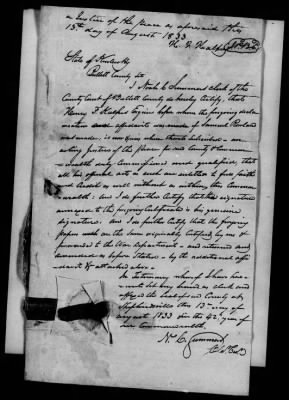 a Justice of the Peace as aforesaid this
13th day of August 1833
H. F. Kalfus
State of Kentucky
Bullitt County Sct
I Noah C Summers clerk of the
County Court of Bullitt County do hereby Certify, that
Henry F. Kalfus Esquire before whom the foregoing decla
ration and affidavits was made of Samuel
and made, is and was when those
acting Justice of the peace for said County & Common
wealth duly Commissioned and qualified, that
all his official acts as such are entitled to full faith
and credit as well without as within, this Common
wealth: and I do further Certify that the signature
annexed to the foregoing is his genuine
signature: And I do further Certify that the foregoing
papers are the same originally Certified by me &
forwarded to the War Department — and returned and
amended as before Stated — by the additional affi
davit & attached above —
In testimony whereof I have here
unto set my hand as clerk and
affixed the Seal of said County at
Shepherdsville this 13th day of
August 1833 and the 42d year of
our Commonwealth.
N. C. Summers